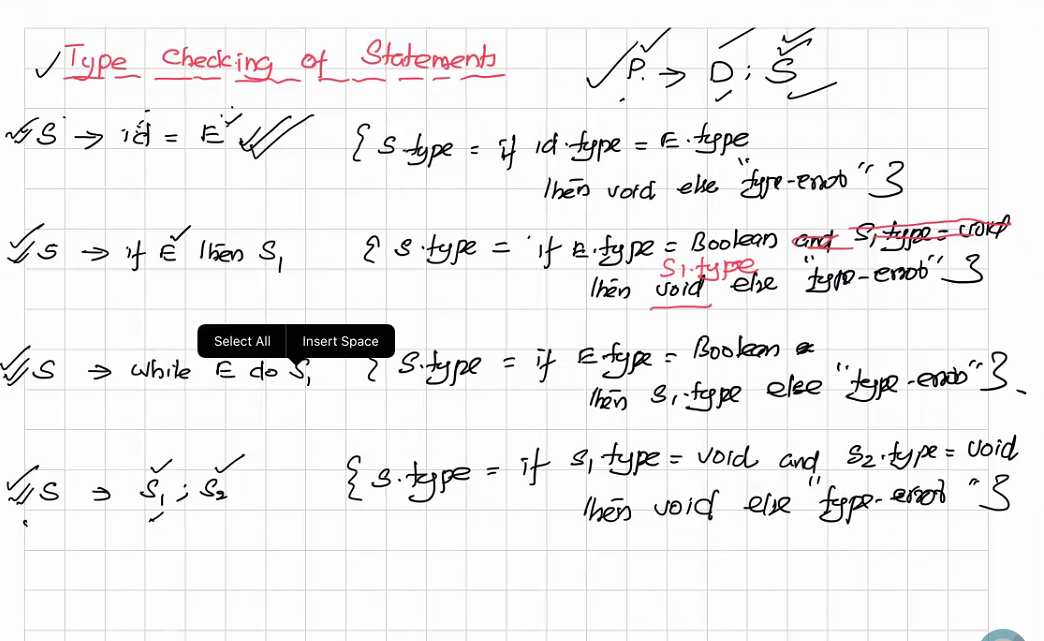 Type Checking of Statements
P. → D ; S
S → id = E
{ S.type = if id.type = E.type
then void else "type-error" }
S → if E then S₁
{ S.type = if E.type = Boolean and S₁.type = void
S₁.type
then void else "type-error" }
Select All Insert Space
S → while E do S₁
{ S.type = if E.type = Boolean
then S₁.type else "type-error" }.
S → S₁ ; S₂
{ S.type = if S₁.type = void and S₂.type = void
then void else "type-error" }